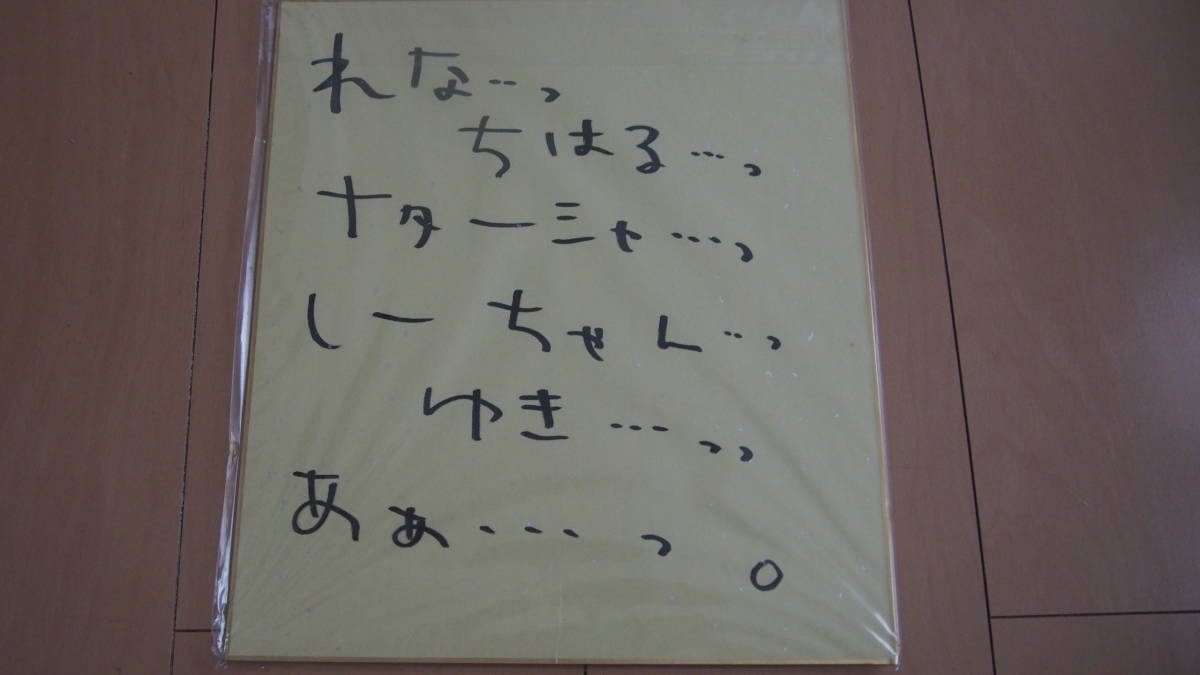 れな…っ
ちはる…っ
ナターシャ…っ
しーちゃん…っ
ゆき…っっ
あぁ…っ。